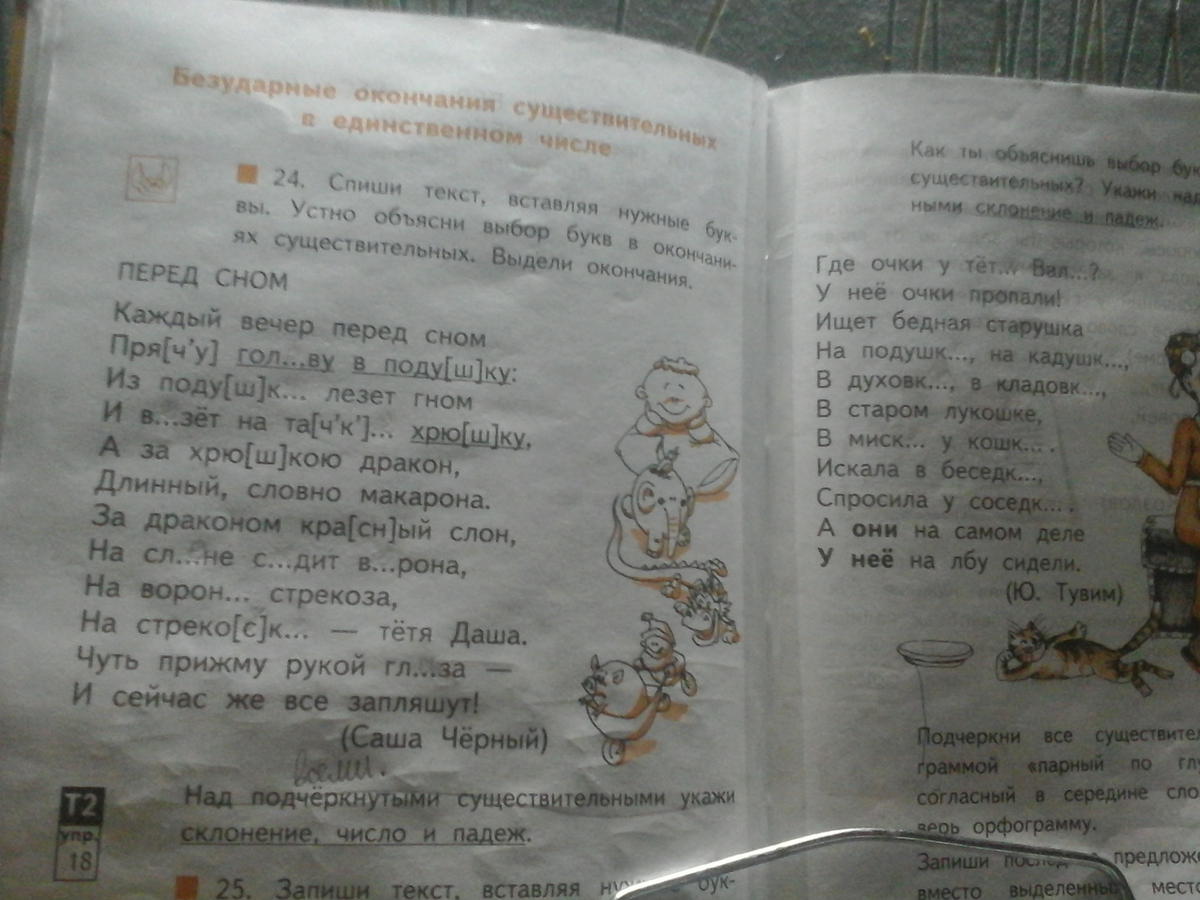 Безударные окончания существительных
в единственном числе
24. Спиши текст, вставляя нужные бук-
вы. Устно объясни выбор букв в окончани-
ях существительных. Выдели окончания.
ПЕРЕД СНОМ
Каждый вечер перед сном
Пря[ч'у] гол...ву в поду[ш]ку:
Из поду[ш]к... лезет гном
И в...зёт на та[ч'к']... хрю[ш]ку,
А за хрю[ш]кою дракон,
Длинный, словно макарона.
За драконом кра[сн]ый слон,
На сл...не с...дит в...рона,
На ворон... стрекоза,
На стреко[с]к... — тётя Даша.
Чуть прижму рукой гл...за —
И сейчас же все запляшут!
(Саша Чёрный)
Над подчёркнутыми существительными укажи
склонение, число и падеж.
Т2
упр.
18
25. Запиши текст, вставляя бук-
Как ты объяснишь выбор бук
существительных? Укажи над
ными склонение и падеж.
Где очки у тёт... Вал...?
У неё очки пропали!
Ищет бедная старушка
На подушк..., на кадушк...,
В духовк..., в кладовк...,
В старом лукошке,
В миск... у кошк... .
Искала в беседк...,
Спросила у соседк... .
А они на самом деле
У неё на лбу сидели.
(Ю. Тувим)
Подчеркни все существител
граммой «парный по глу
согласный в середине сло
верь орфограмму.
Запиши предложе
вместо выделенных место